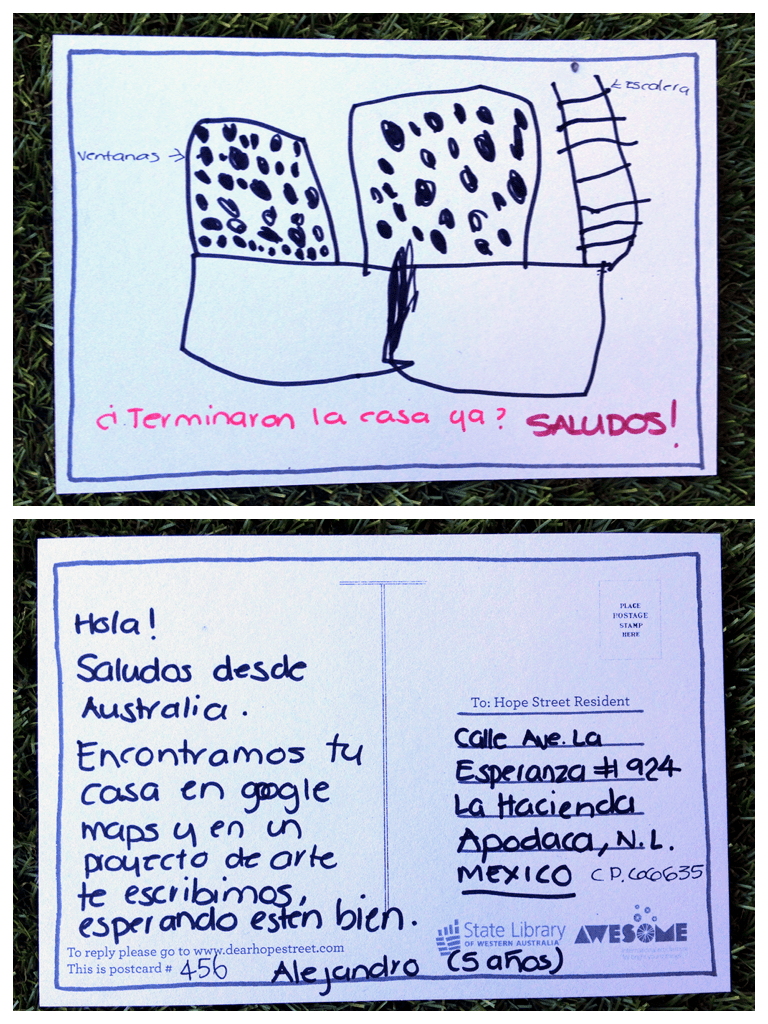 Escalera
ventanas →
¿Terminaron la casa ya? SALUDOS!
Hola!
Saludos desde
Australia.
Encontramos tu
casa en google
maps y en un
proyecto de arte
te escribimos,
esperando estén bien.
To reply please go to www.dearhopestreet.com
This is postcard # 456
Alejandro (5 años)
PLACE
POSTAGE
STAMP
HERE
To: Hope Street Resident
Calle Ave. La
Esperanza #924
La Hacienda
Apodaca, N.L.
MEXICO C.P. 66635
State Library
OF WESTERN AUSTRALIA
AWESOME